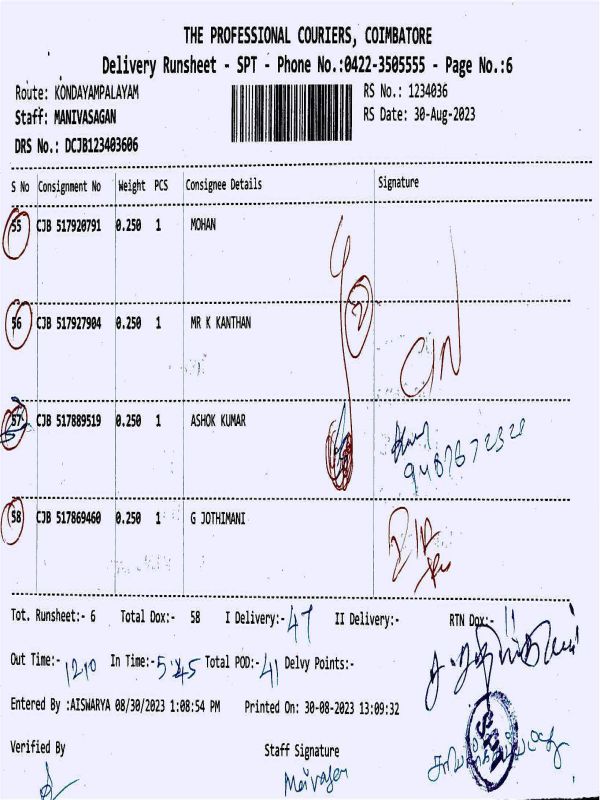 THE PROFESSIONAL COURIERS, COIMBATORE
Delivery Runsheet - SPT - Phone No.:0422-3505555 - Page No.:6
Route: KONDAYAMPALAYAM
RS No.: 1234036
Staff: MANIVASAGAN
RS Date: 30-Aug-2023
DRS No.: DCJB123403606
S No Consignment No Weight PCS Consignee Details Signature
55 CJB 517920791 0.250 1 MOHAN
56 CJB 517927904 0.250 1 MR K KANTHAN
57 CJB 517889519 0.250 1 ASHOK KUMAR
58 CJB 517869460 0.250 1 G JOTHIMANI
Tot. Runsheet:- 6 Total Dox:- 58 I Delivery:- 47 II Delivery:- RTN Dox:- 11
Out Time:- 1210 In Time:- 5:45 Total POD:- 41 Delvy Points:-
Entered By :AISWARYA 08/30/2023 1:08:54 PM Printed On: 30-08-2023 13:09:32
Verified By Staff Signature